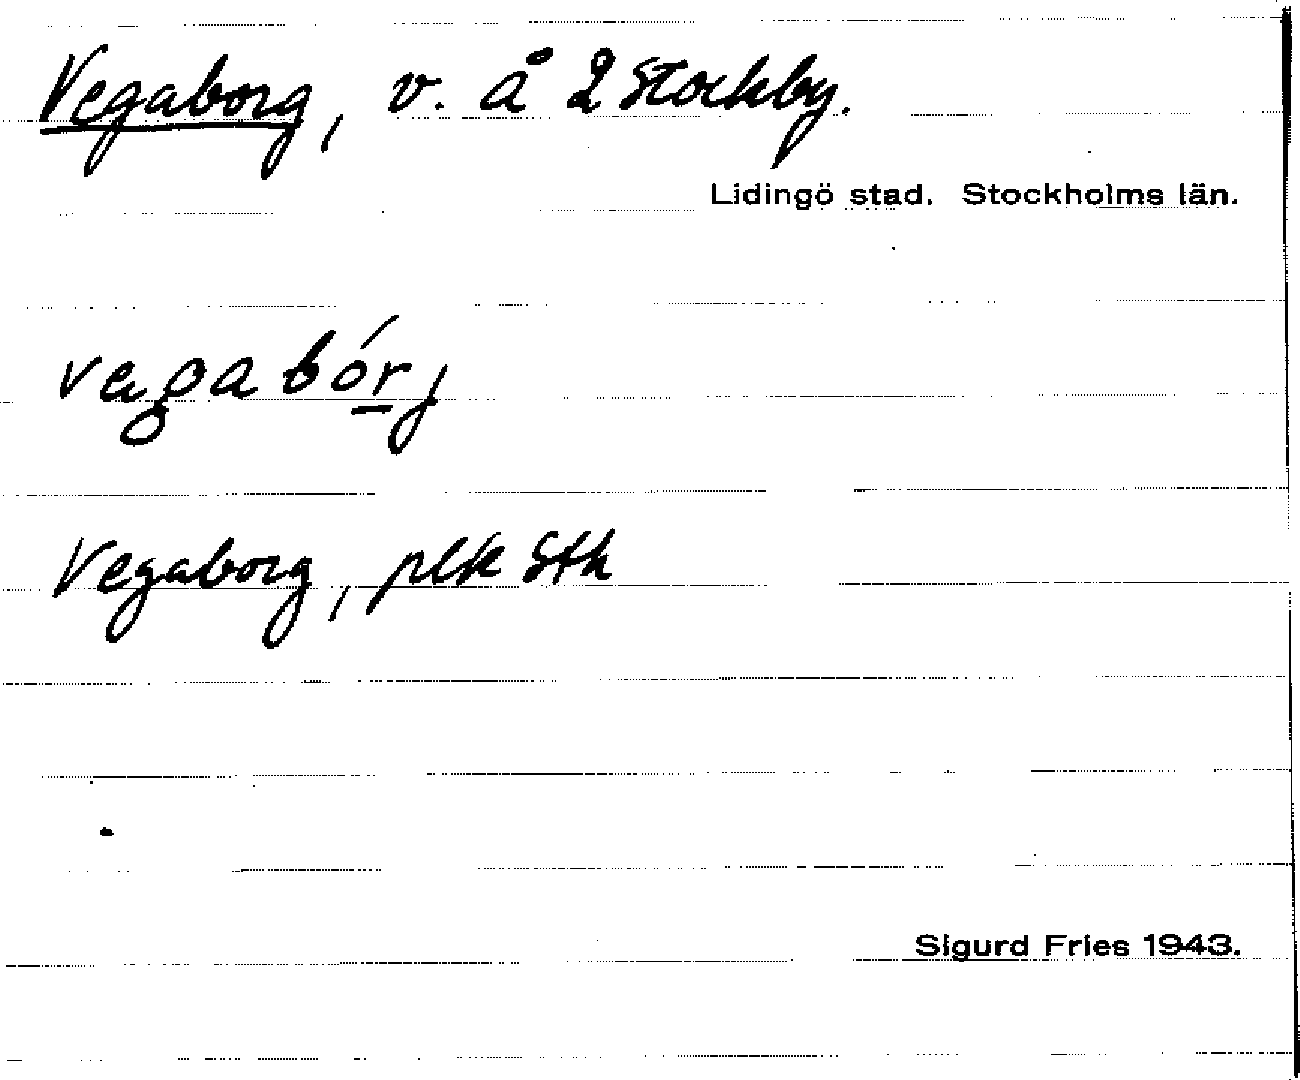 Vegaborg, v. å 2 Stockby.
Lidingö stad. Stockholms län.
vegabórj
Vegaborg, plk Sth
Sigurd Fries 1943.